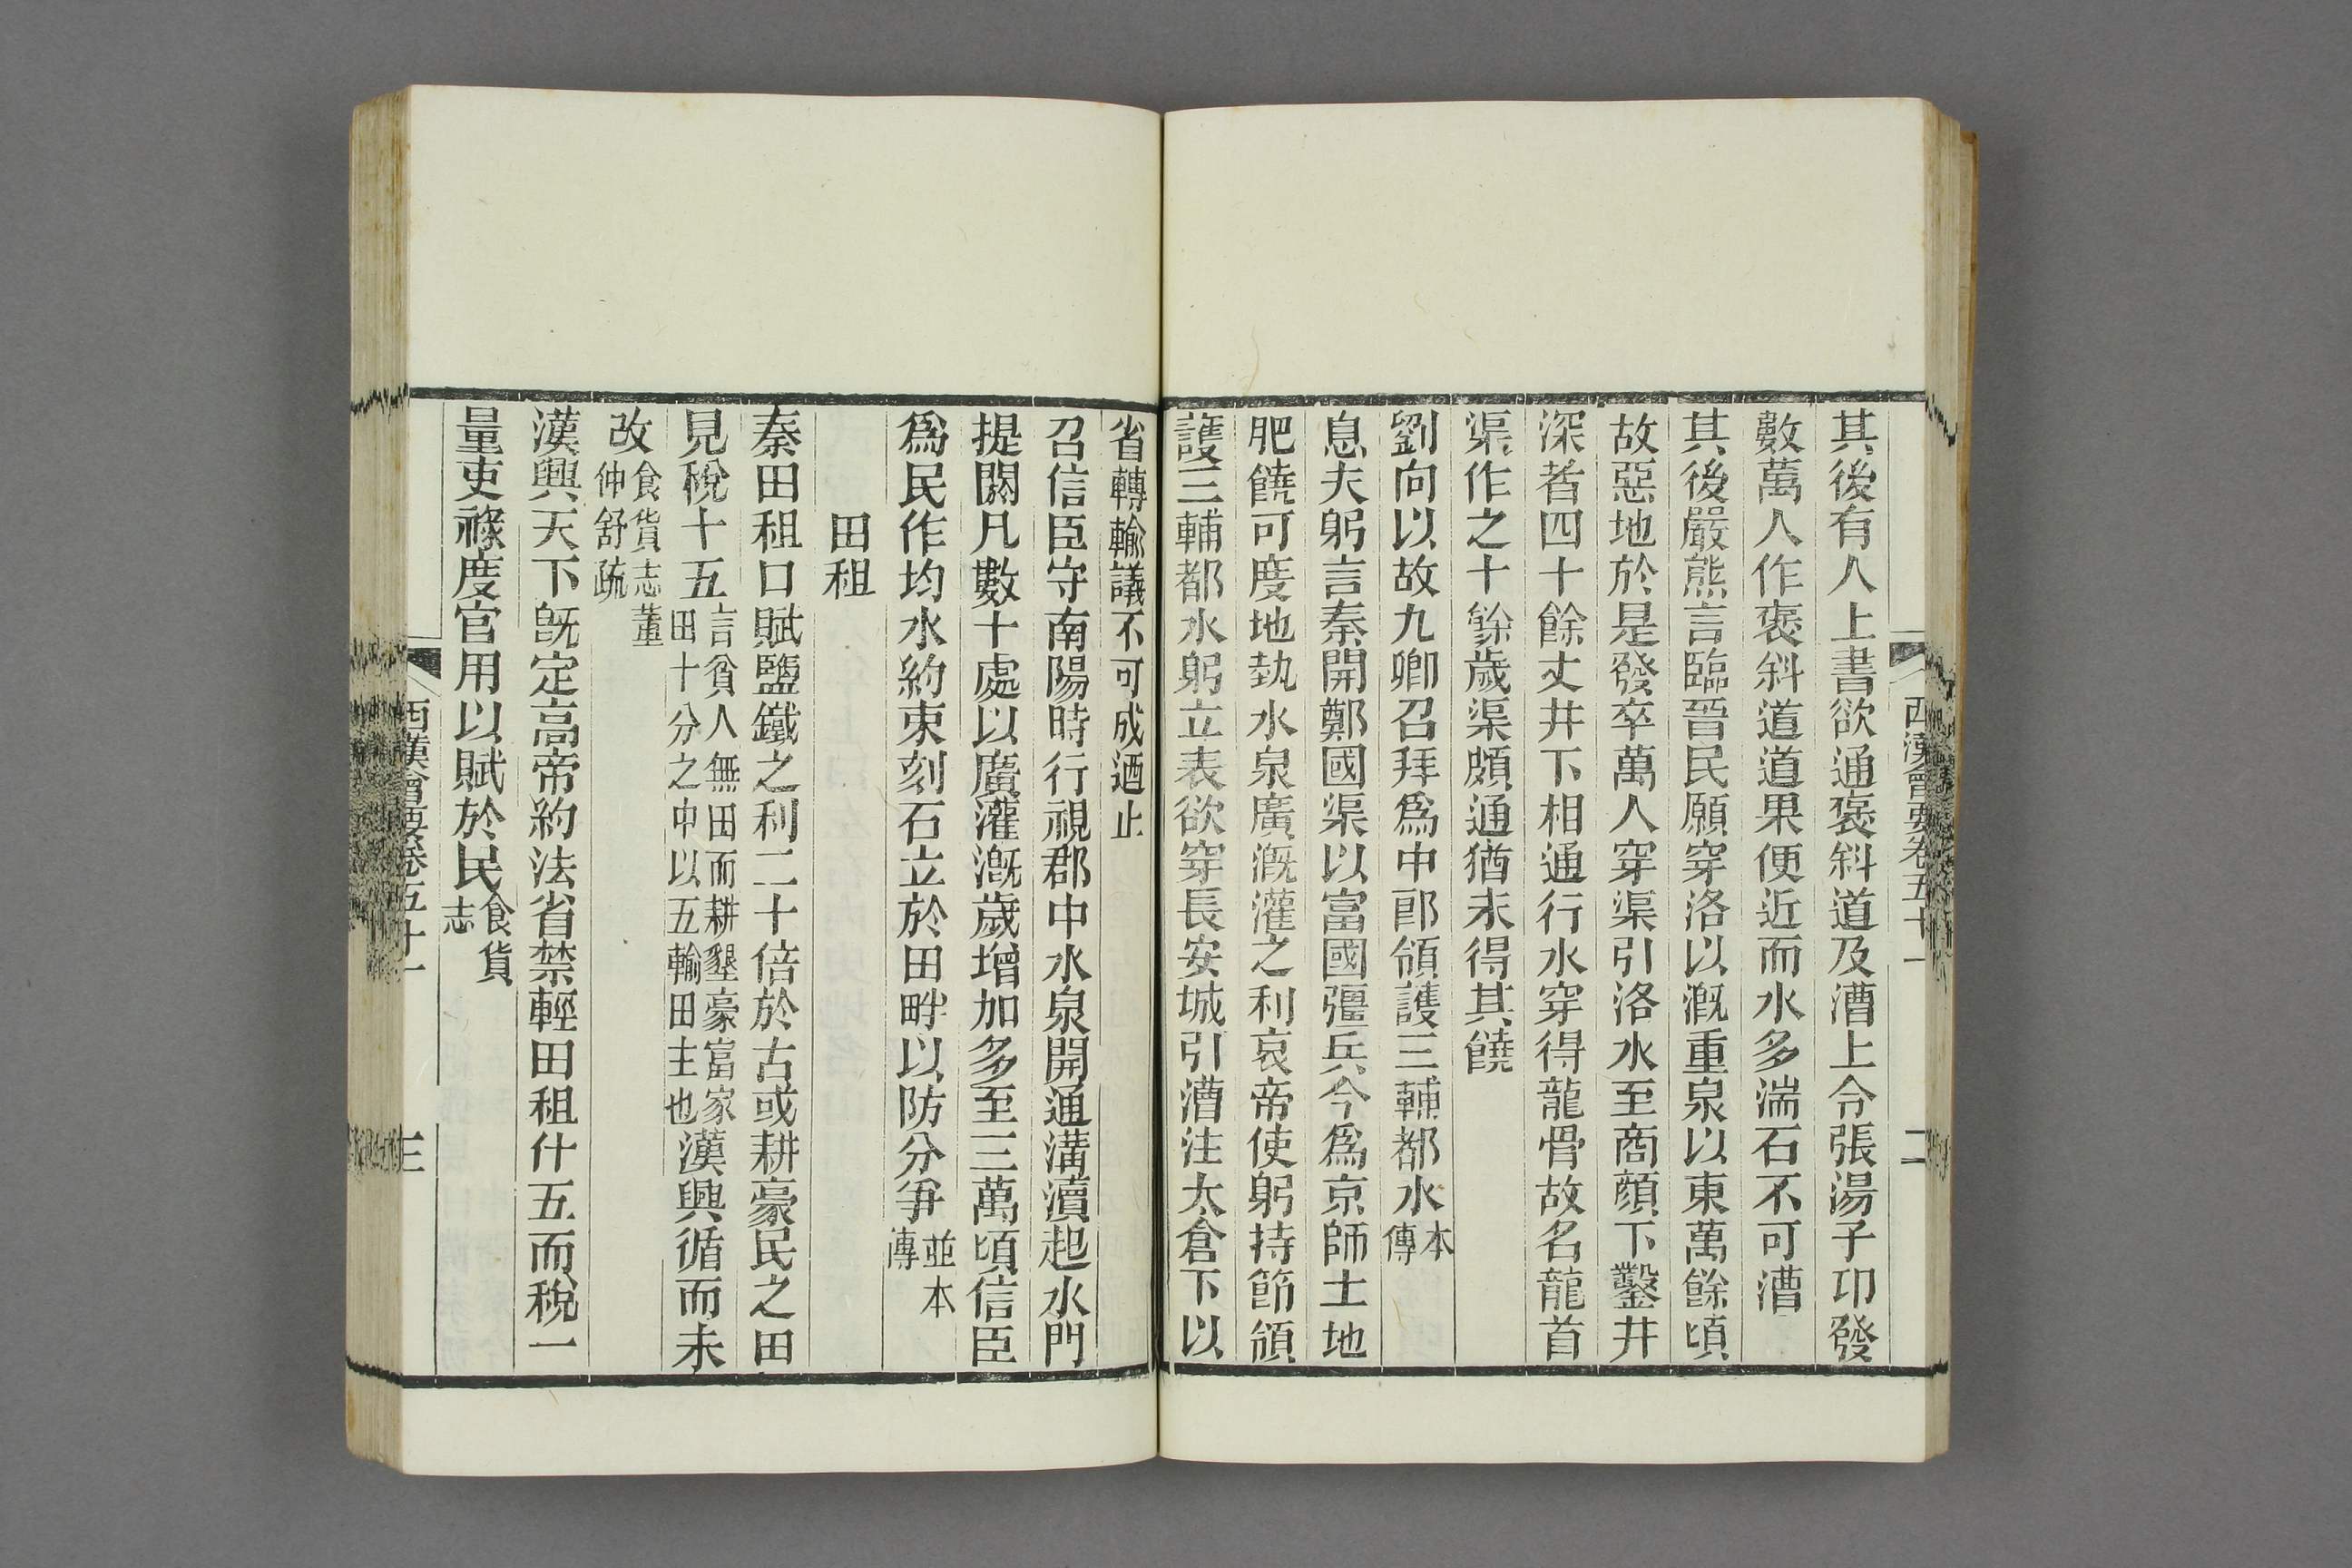 西漢會要卷五十一
二
其後有人上書欲通褒斜道及漕上令張湯子卬發
數萬人作褒斜道道果便近而水多湍石不可漕
其後嚴熊言臨晉民願穿洛以漑重泉以東萬餘頃
故惡地於是發卒萬人穿渠引洛水至商顔下鑿井
深者四十餘丈井下相通行水穿得龍骨故名龍首
渠作之十餘歲渠頗通猶未得其饒
劉向以故九卿召拜爲中郎領護三輔都水本傳
息夫躬言秦開鄭國渠以富國彊兵今爲京師土地
肥饒可度地埶水泉廣漑灌之利哀帝使躬持節領
護三輔都水躬立表欲穿長安城引漕注太倉下以
省轉輸議不可成迺止
召信臣守南陽時行視郡中水泉開通溝瀆起水門
提閼凡數十處以廣灌漑歲增加多至三萬頃信臣
爲民作均水約束刻石立於田畔以防分爭並本傳
田租
秦田租口賦鹽鐵之利二十倍於古或耕豪民之田
見稅十五言貧人無田而耕墾豪富家田十分之中以五輸田主也漢興循而未
改食貨志董仲舒疏
漢興天下旣定高帝約法省禁輕田租什五而稅一
量吏祿度官用以賦於民食貨志
西漢會要卷五十一
三